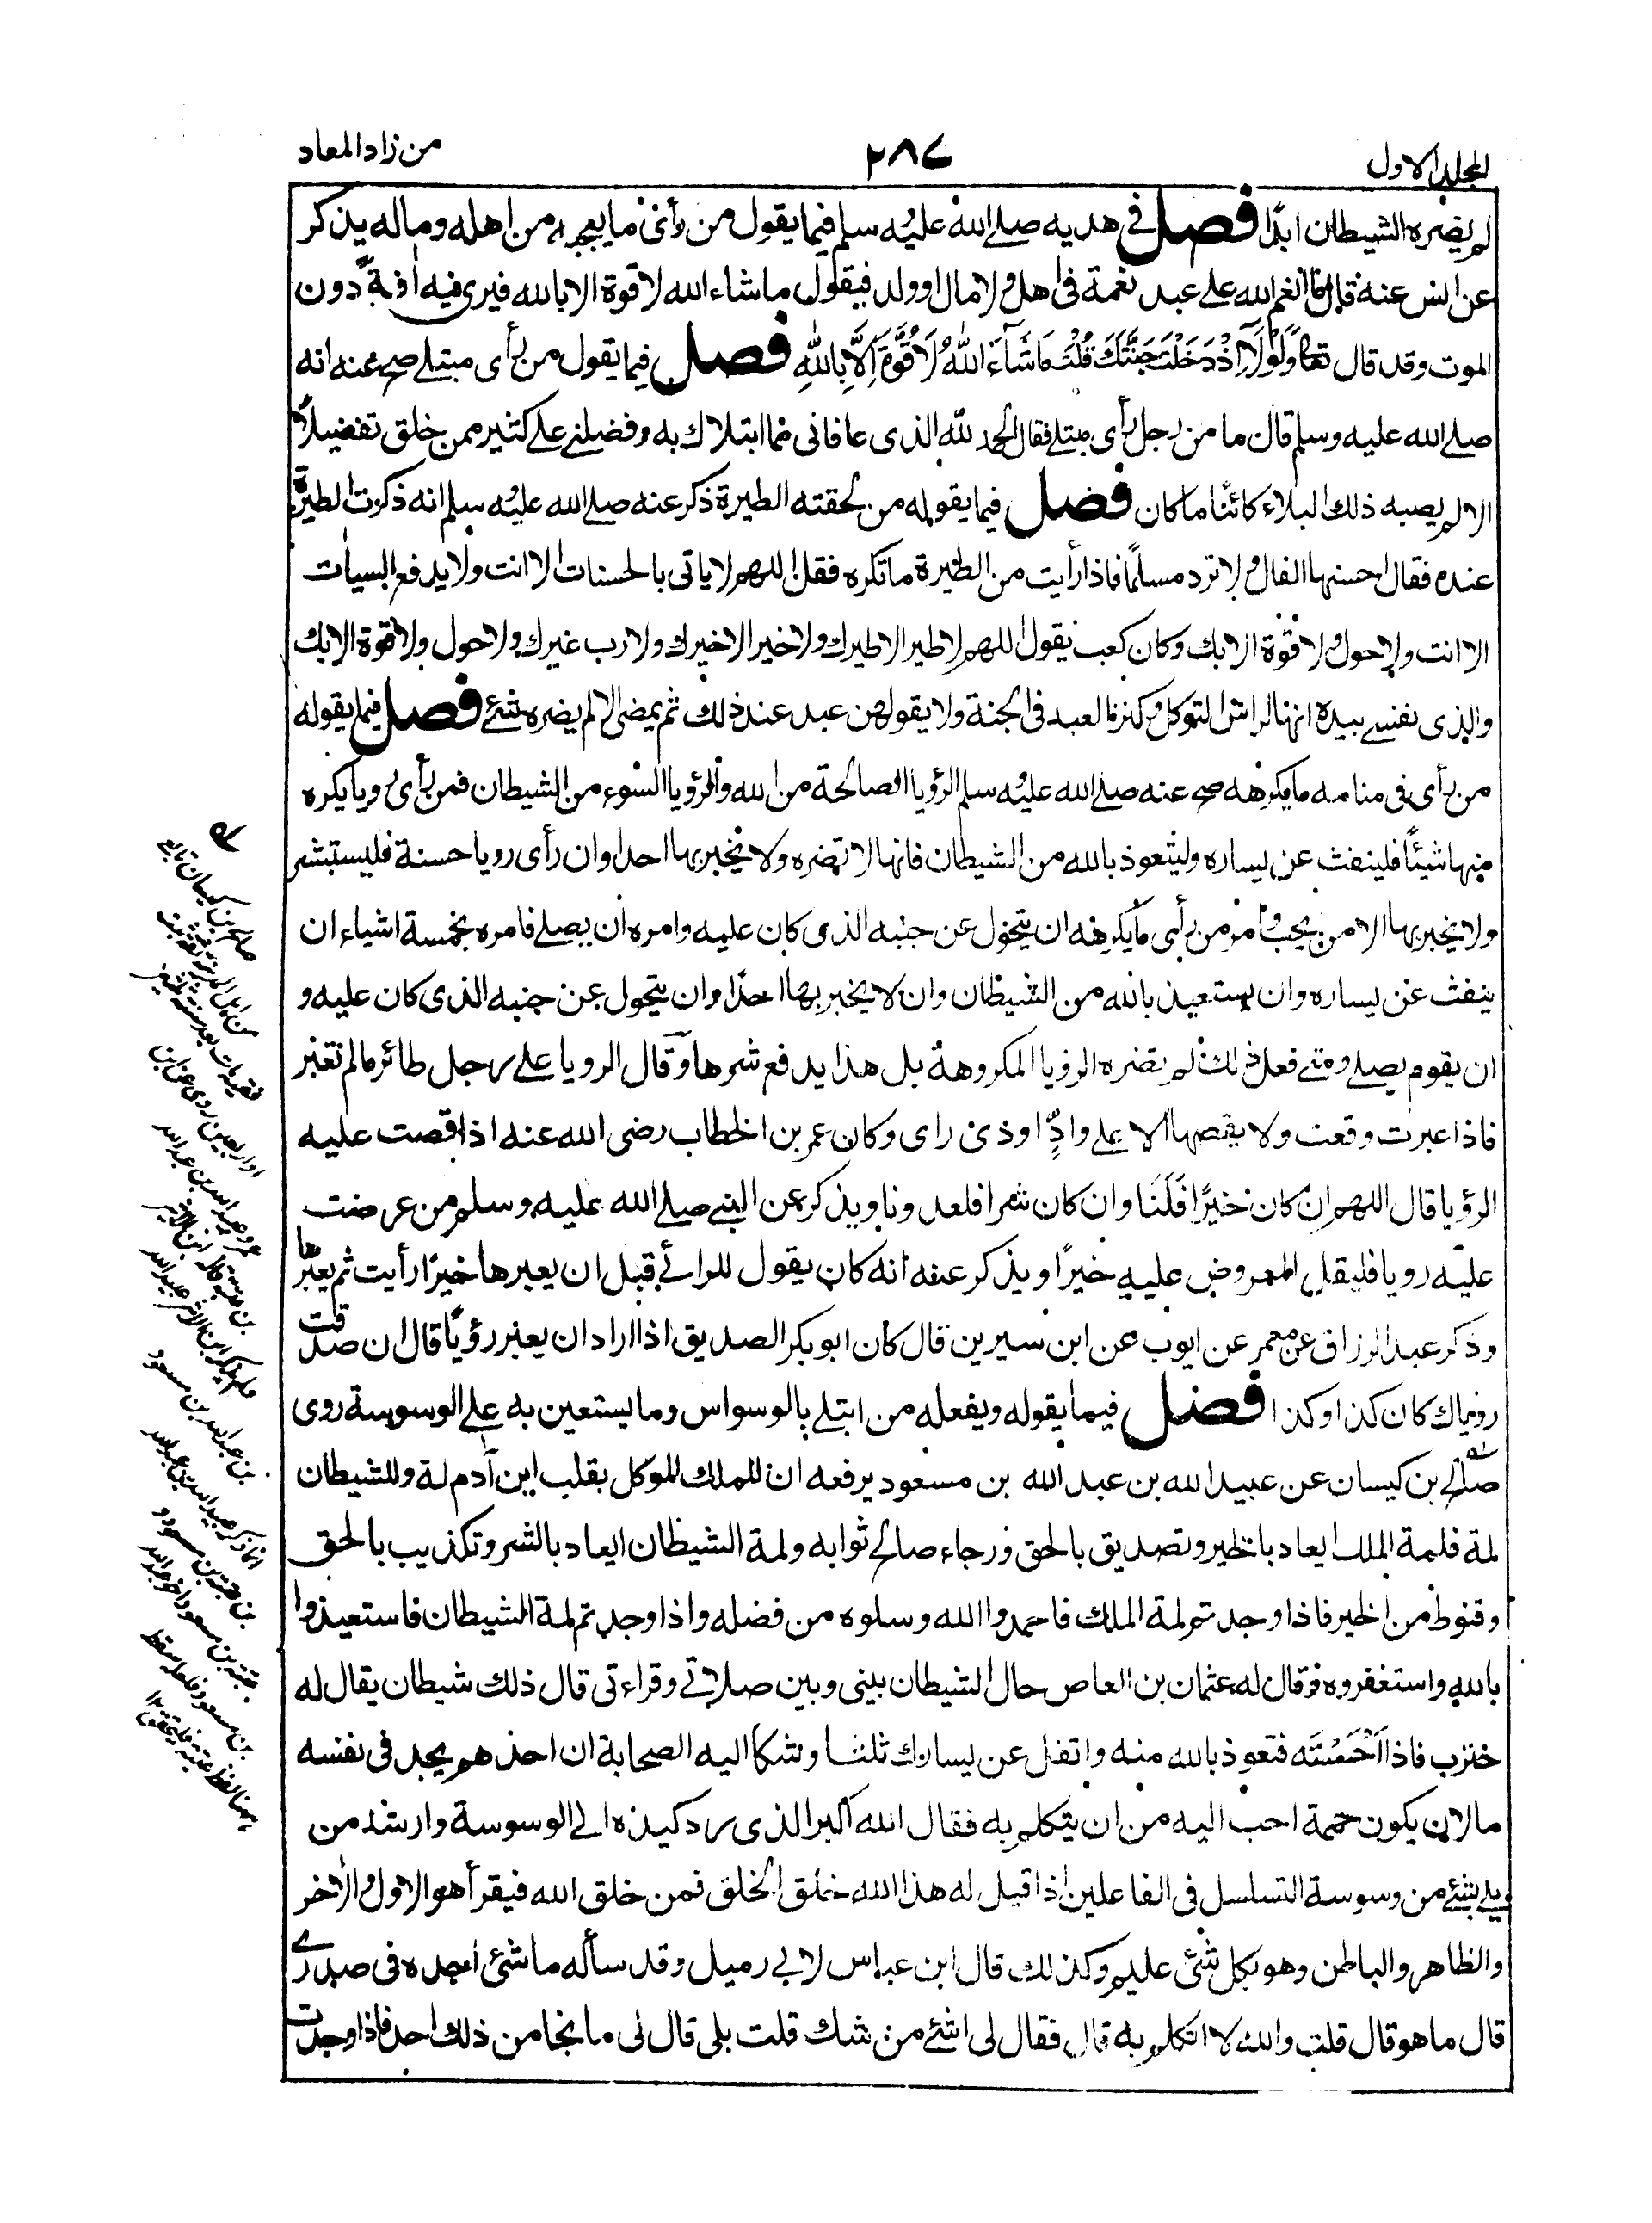 المجلد الاول
٢٨٧
من زاد المعاد
لم يضره الشيطان ابدًا فصل فى هديه صلے الله عليه وسلم فيما يقول من رأى ما يعجبه من اهله وماله يذكر
عن انس عنه قال ما انعم الله علے عبد نعمة فى اهل ولا مال اوولد فيقول ما شاء الله لا قوة الا بالله فيرى فيه اٰفةً دون
الموت وقد قال تعالى وَلَوْلَا اِذْ دَخَلْتَ جَنَّتَكَ قُلْتَ مَا شَآءَ اللّٰهُ لَا قُوَّةَ اِلَّا بِاللّٰهِ فصل فيما يقول من رأى مبتلے صح عنه انه
صلے الله عليه وسلم قال ما من رجل رأى مبتلے فقال الحمد لله الذى عافانى مما ابتلاك به وفضلنے علے كثير ممن خلق تفضيلاً
الا لم يصبه ذلك البلاء كائنًا ما كان فصل فيما يقوله من لحقته الطيرة ذكر عنه صلے الله عليه وسلم انه ذكرت الطيرة
عنده فقال احسنها الفال ولا ترد مسلمًا فاذا رأيت من الطيرة ما تكره فقل اللهم لا ياتى بالحسنات الا انت ولا يدفع السيات
الا انت ولا حول ولا قوة الا بك وكان كعب يقول اللهم لا طير الا طيرك ولا خير الا خيرك ولا رب غيرك ولا حول ولا قوة الا بك
والذى نفسے بيده انها لراس التوكل وكنز العبد فى الجنة ولا يقولهن عبد عند ذلك ثم يمضى الا لم يضره شئے فصل فيما يقوله
من رأى فى منامه ما يكرهه صح عنه صلے الله عليه وسلم الرؤيا الصالحة من الله والرؤيا السوء من الشيطان فمن رأى رويا يكره
منها شيئًا فلينفث عن يساره وليتعوذ بالله من الشيطان فانها لا تضره ولا يخبر بها احدا وان رأى رويا حسنة فليستبشر
ولا يخبر بها الا من يحب وامر من رأى ما يكرهه ان يتحول عن جنبه الذى كان عليه وامره ان يصلے فامره بخمسة اشياء ان
ينفث عن يساره وان يستعيذ بالله من الشيطان وان لا يخبر بها احدًا وان يتحول عن جنبه الذى كان عليه و
ان يقوم يصلے ومتے فعل ذلك لم تضره الرؤيا المكروهة بل هذا يدفع شرها وقال الرويا علے رجل طائر ما لم تعبر
فاذا عبرت وقعت ولا يقصها الا علے وادٍّ او ذى راى وكان عمر بن الخطاب رضى الله عنه اذا قصت عليه
الرؤيا قال اللهم ان كان خيرًا فَلَنَا وان كان شرا فلعدونا ويذكر عن النبے صلے الله عليه وسلم من عرضت
عليه رويا فليقل المعروض عليه خيرًا ويذكر عنه انه كان يقول للرائے قبل ان يعبرها خيرًا رأيت ثم يعبرها
وذكر عبد الرزاق عن معمر عن ايوب عن ابن سيرين قال كان ابو بكر الصديق اذا اراد ان يعبر رؤيًا قال ان صدقت
رؤياك كان كذا وكذا فصل فيما يقوله ويفعله من ابتلے بالوسواس وما يستعين به علے الوسوسة روى
صالح بن كيسان عن عبيد الله بن عبد الله بن مسعود يرفعه ان للملك الموكل بقلب ابن آدم لمة وللشيطان
لمة فلمة الملك ايعاد بالخير وتصديق بالحق ورجاء صالح ثوابه ولمة الشيطان ايعاد بالشر وتكذيب بالحق
وقنوط من الخير فاذا وجدتم لمة الملك فاحمدوا الله وسلوه من فضله واذا وجدتم لمة الشيطان فاستعيذوا
بالله واستغفروه وقال له عثمان بن العاص حال الشيطان بينى وبين صلاتے وقراءتى قال ذلك شيطان يقال له
خنزب فاذا اَحْسَسْتَه فتعوذ بالله منه واتفل عن يسارك ثلثا وشكا اليه الصحابة ان احدهم يجد فى نفسه
ما لان يكون حممة احب اليه من ان يتكلم به فقال الله اكبر الذى رد كيده الے الوسوسة وارشد من
بلے بشئے من وسوسة التسلسل فى الفاعلين اذا قيل له هذا الله خلق الخلق فمن خلق الله فيقرأ هو الاول والاٰخر
والظاهر والباطن وهو بكل شئ عليم وكذلك قال ابن عباس لابے زميل وقد سأله ما شئ اجده فى صدرے
قال ما هو قال قلت والله لا اتكلم به قال فقال لى اشئے من شك قلت بلى قال لى ما نجا من ذلك احد فاذا وجدت
صالح بن كيسان
روى عن ابن
عبيد الله بن عبد الله
بن عبد الله بن مسعود